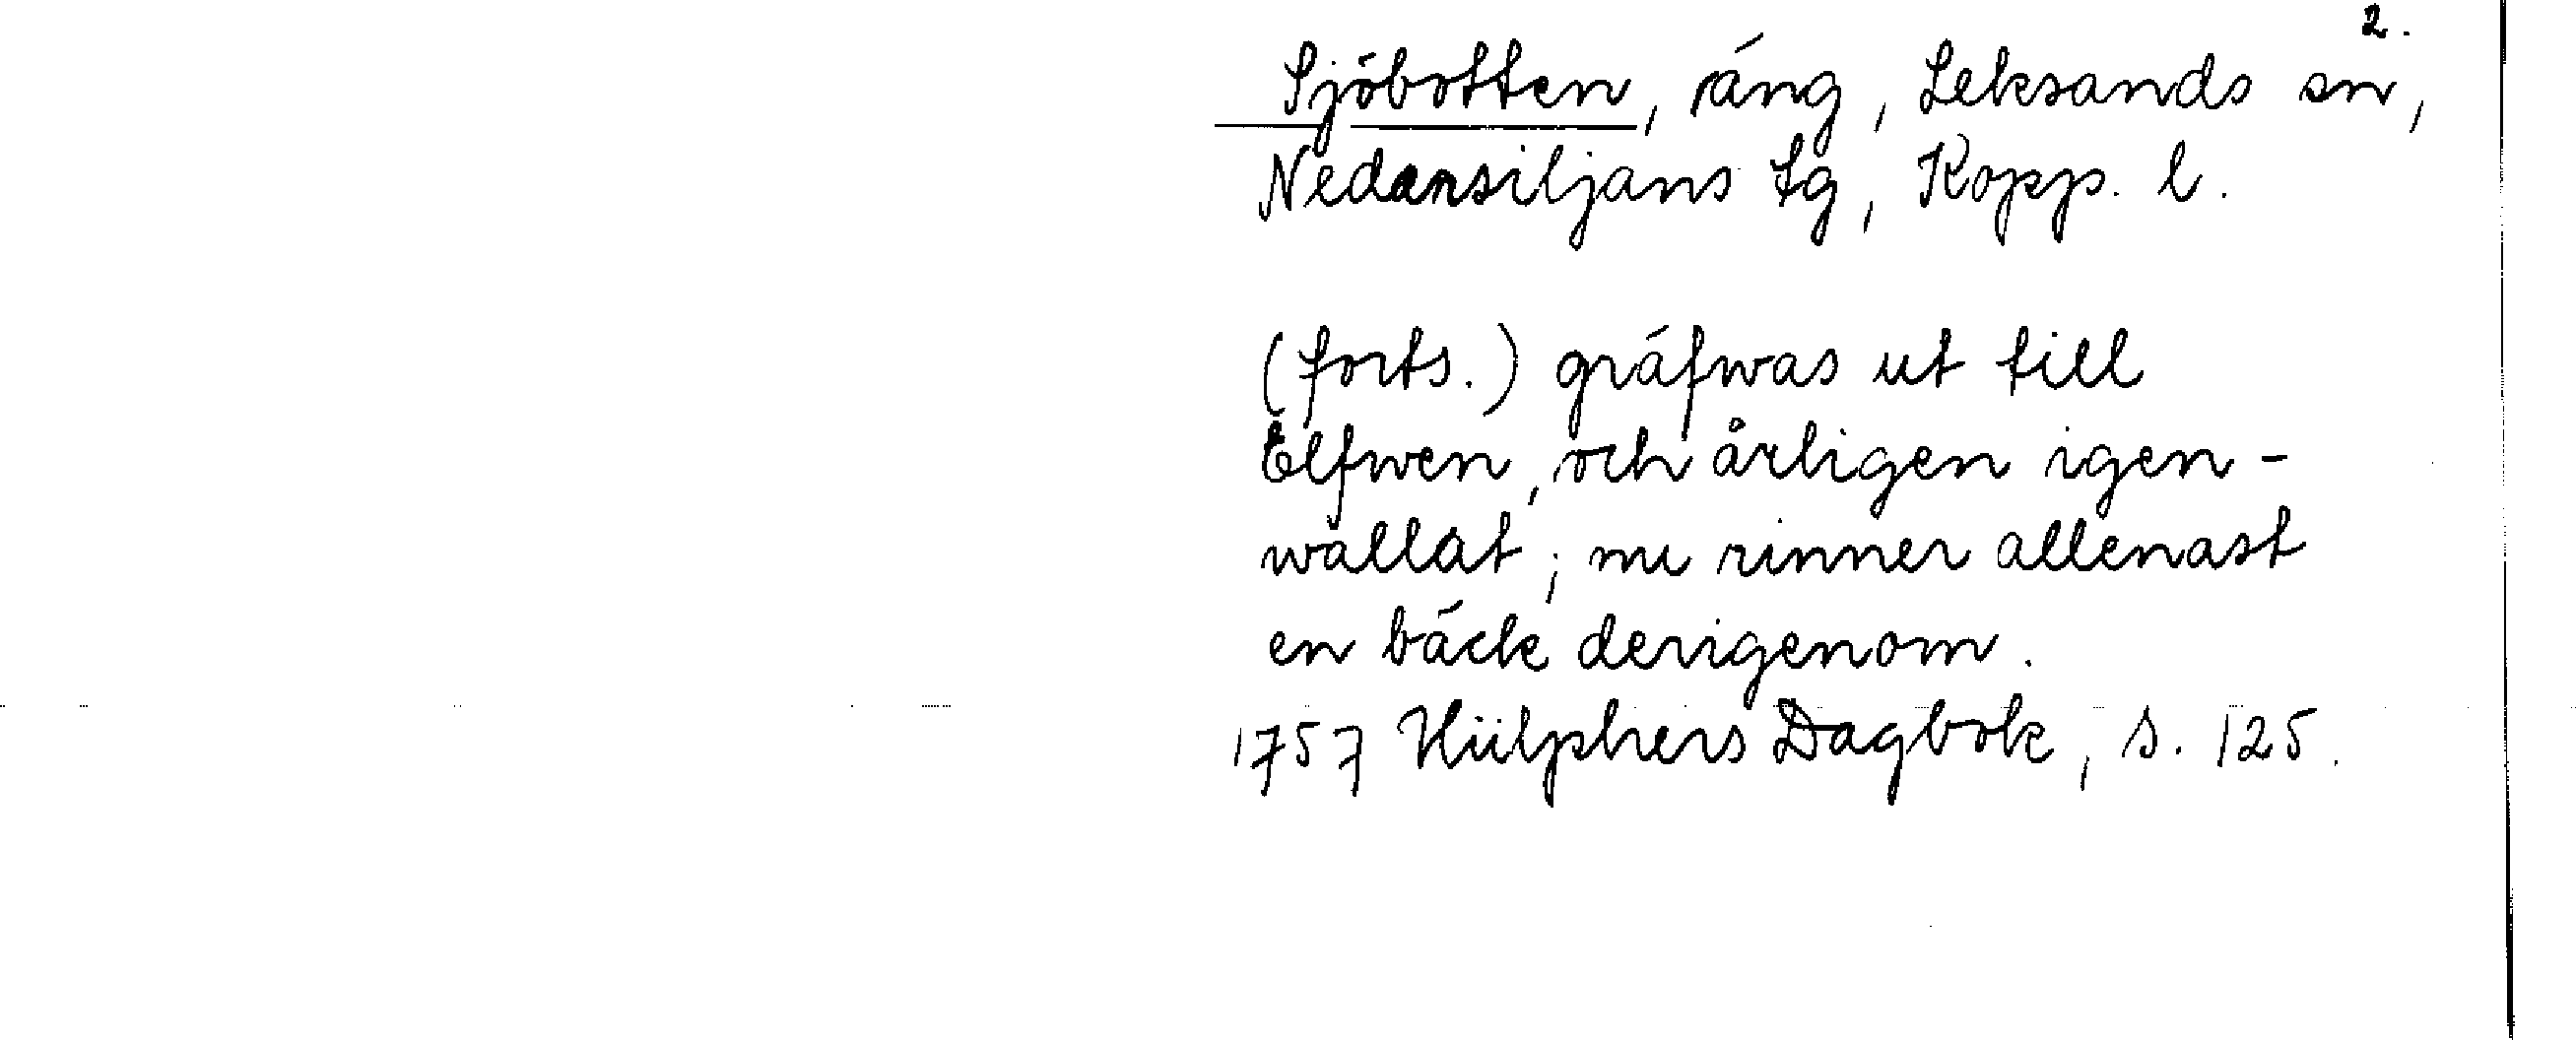 2.
Sjöbotten, äng, Leksands sn,
Nedansiljans tg, Kopp. l.
(forts.) gräfwas ut till
Elfwen, och årligen igen-
wallat; nu rinner allenast
en bäck derigenom.
1757 Hülphers Dagbok, s. 125.